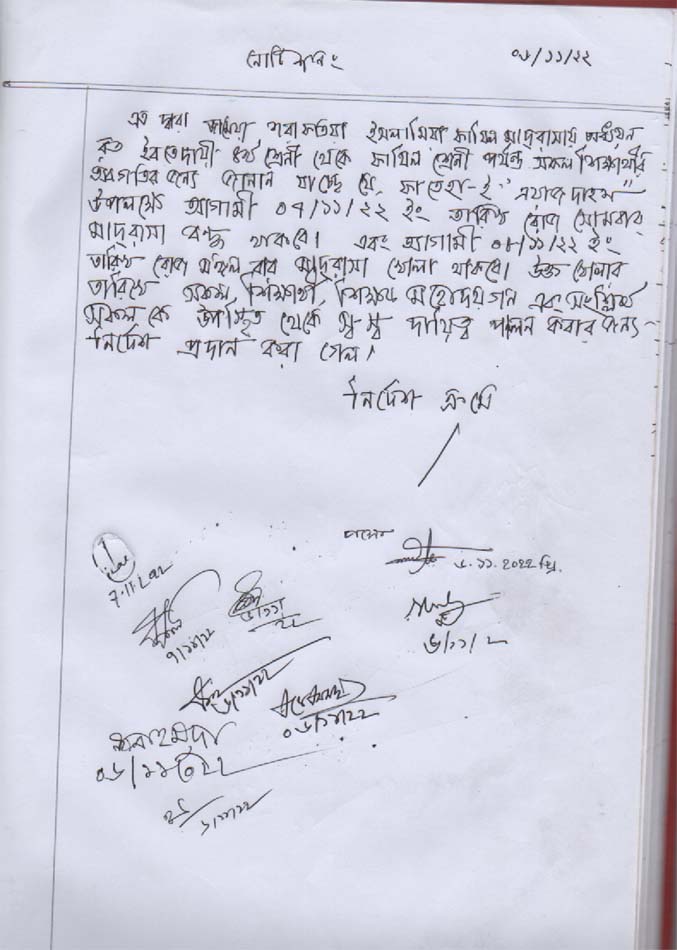 নোটিশ নং ০৬/১১/২২
এত দ্বারা ইসলামিয়া ফাযিল মাদ্রাসায় অধ্যয়ন
রত ইবতেদায়ী ৪র্থ শ্রেনী থেকে ফাযিল শ্রেনী পর্যন্ত সকল শিক্ষার্থীর
অবগতির জন্যে জানান যাচ্ছে যে, ফাতেহা-ই "এয়াজ দাহম"
উপলক্ষে আগামী ০৭/১১/২২ ইং তারিখ রোজ সোমবার
মাদ্রাসা বন্ধ থাকবে। এবং আগামী ০৮/১১/২২ ইং
তারিখ রোজ মঙ্গল বার মাদ্রাসা খোলা থাকবে। উক্ত খোলার
তারিখে সকল শিক্ষার্থী, শিক্ষক মহোদয় গন এবং সংশ্লিষ্ট
সকল কে উপস্থিত থেকে স্ব স্ব দায়িত্ব পালন করার জন্য
নির্দেশ প্রদান করা গেল।
নির্দেশ ক্রমে
৬.১১.২০২২ খ্রি.
7.11.22
৭/১১/২২
৬/১১/২২
৬/১১/২২
৬/১১/২২
০৬/১১/২২
০৬/১১/২২
৬/১১/২২